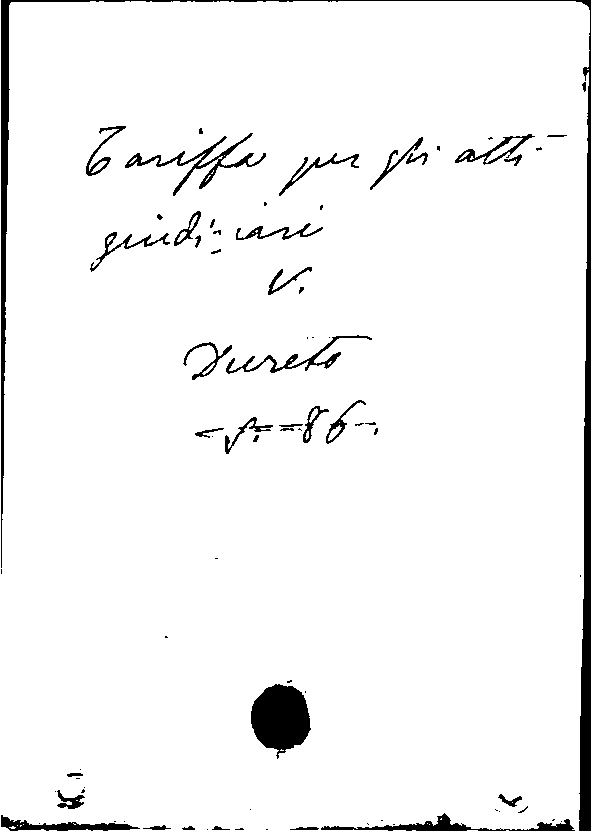 Tariffa per gli atti
giudiziari
V.
Decreto